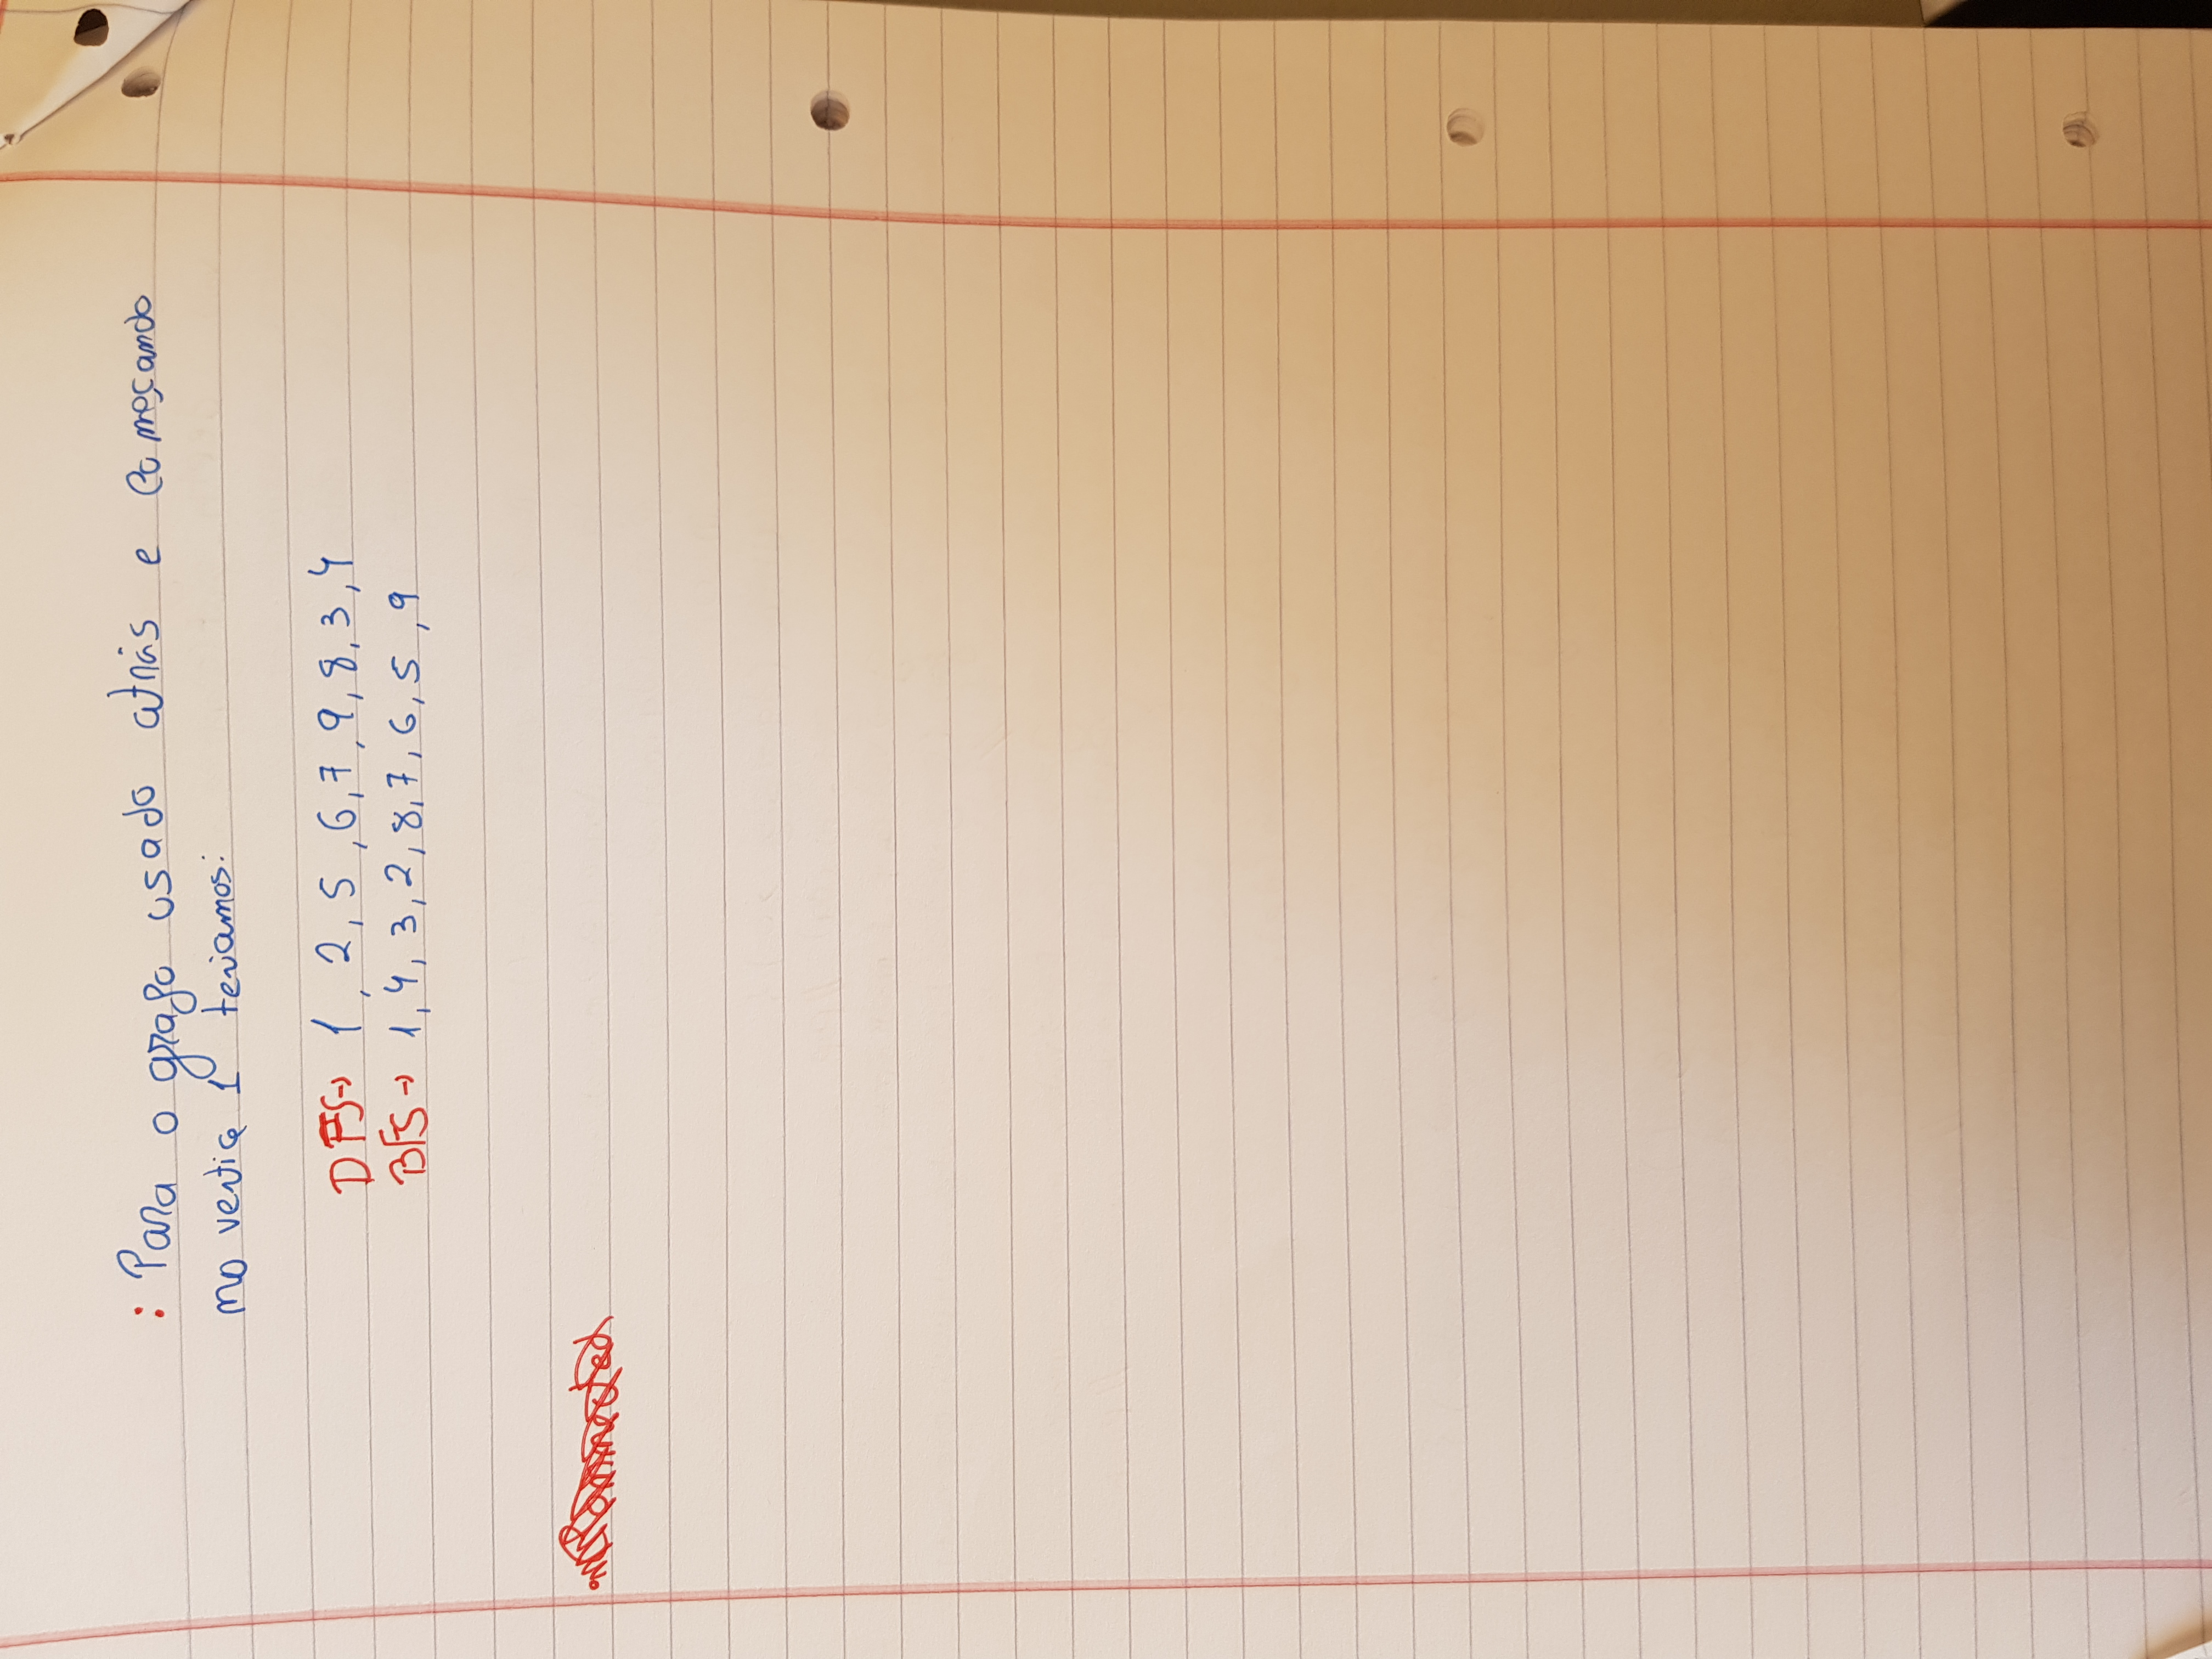 : Para o grafo usado atrás e começando
no vertice 1 teriamos:
DFS→ 1, 2, 5, 6, 7, 9, 8, 3, 4
BFS→ 1, 4, 3, 2, 8, 7, 6, 5, 9